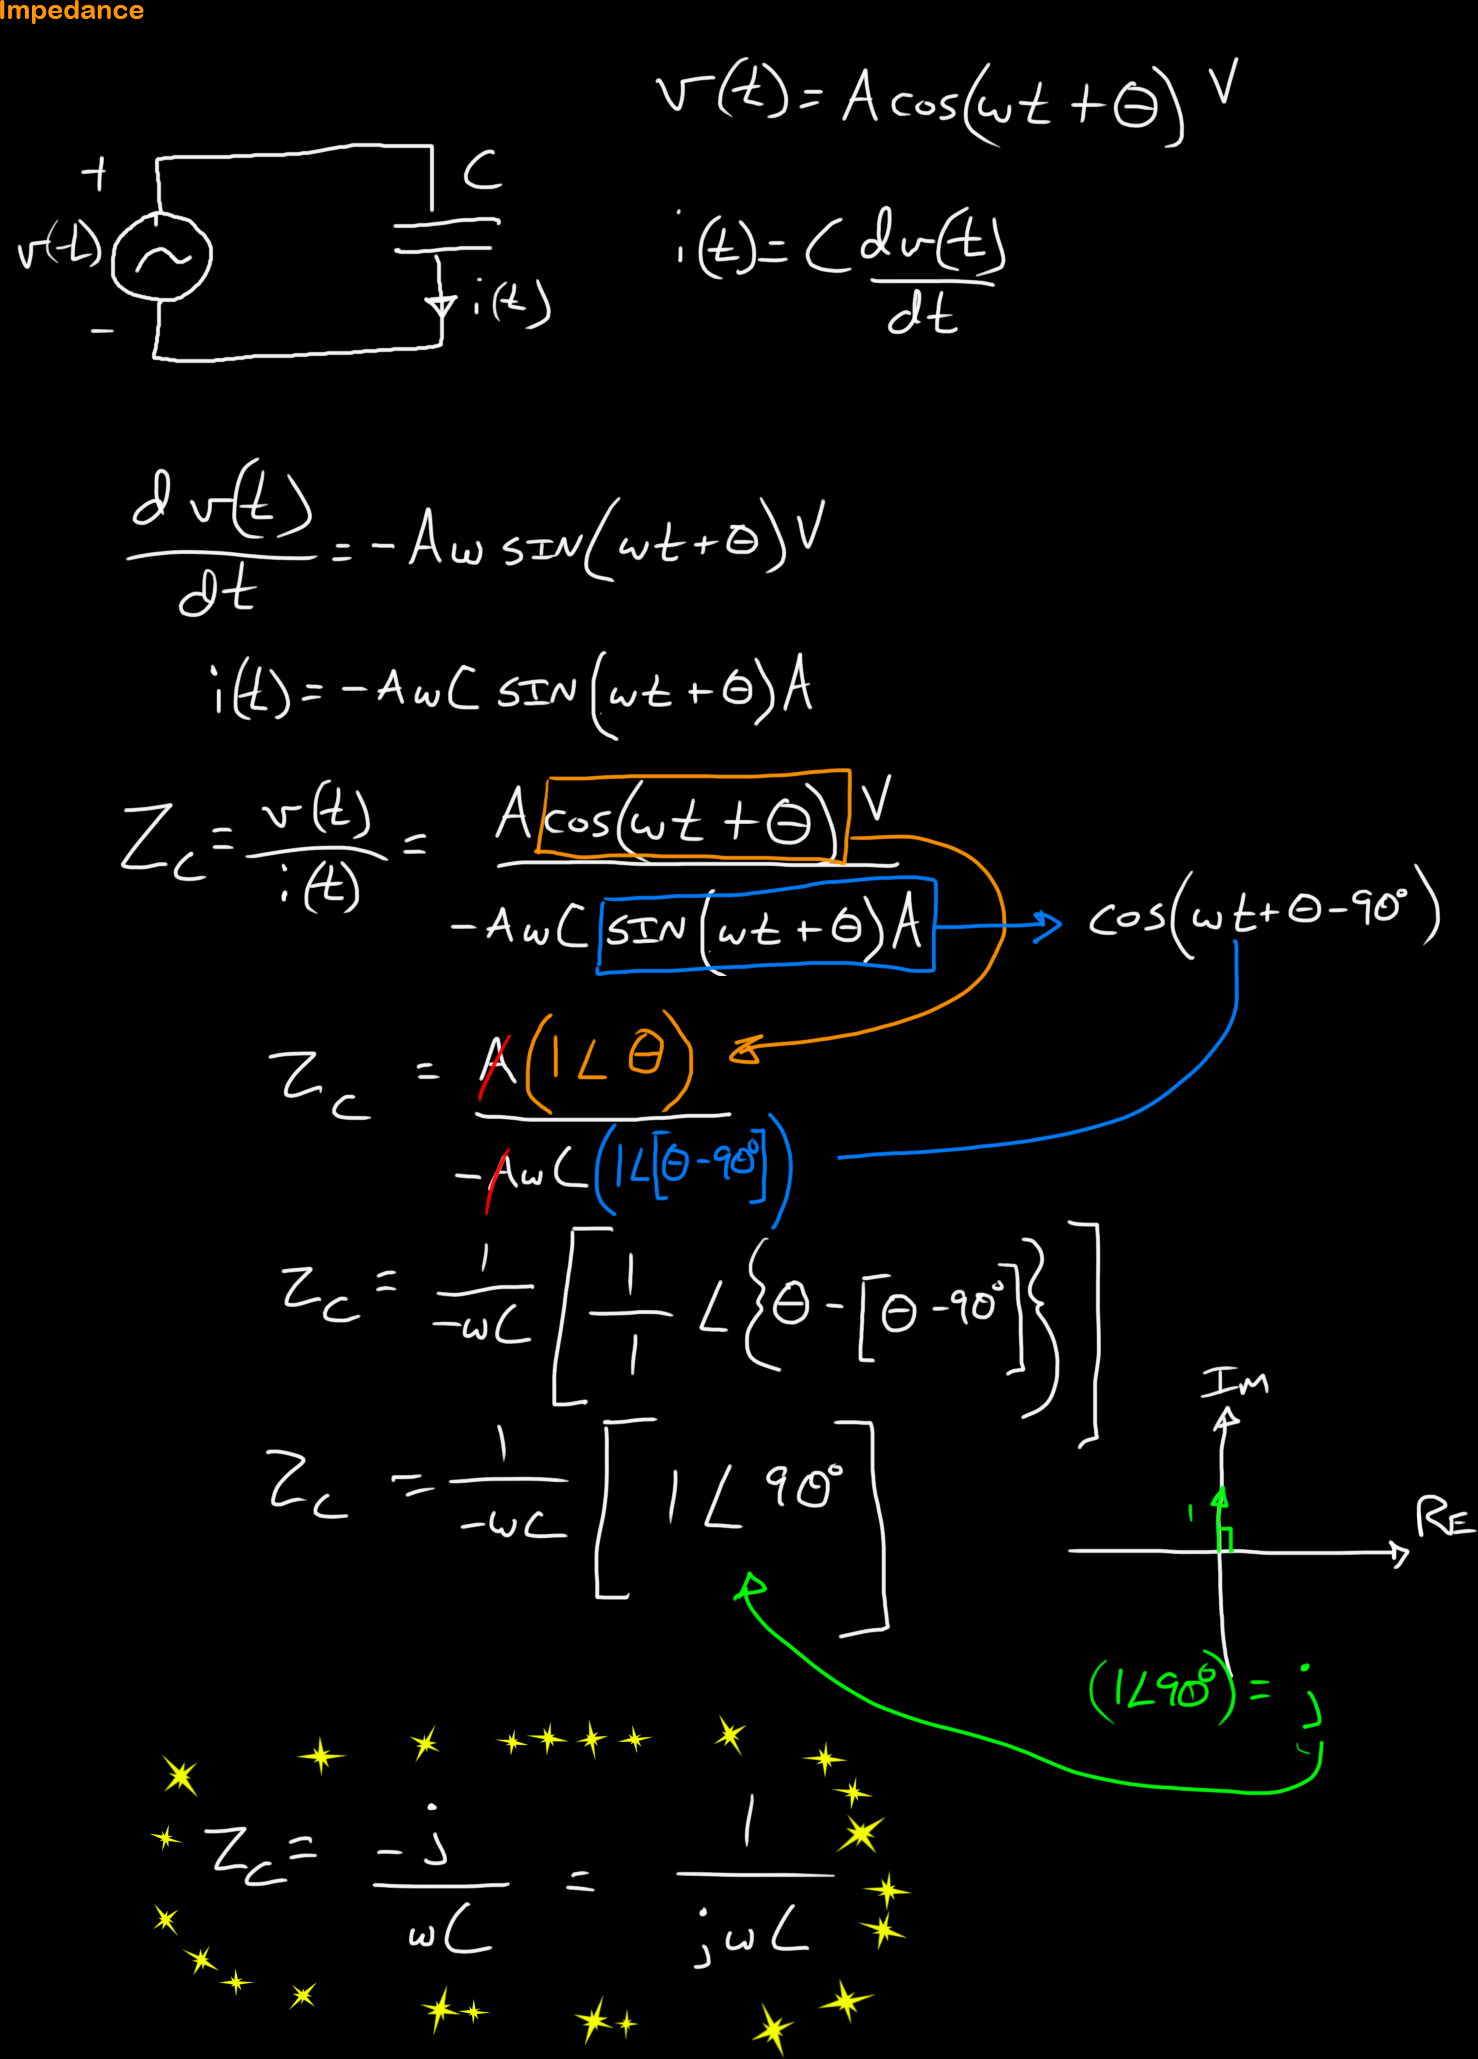 Impedance
v(t) = A cos(ωt + θ) V
+
C
v(t)
i(t) = C dv(t)/dt
i(t)
-
dv(t)/dt = -Aω SIN(ωt + θ) V
i(t) = -AωC SIN(ωt + θ) A
Z_C = v(t)/i(t) = A cos(ωt + θ) V / -AωC SIN(ωt + θ) A
cos(ωt + θ - 90°)
Z_C = A(1∠θ) / -AωC(1∠[θ - 90°])
Z_C = 1/-ωC [1/1 ∠{θ - [θ - 90°]}]
Im
Z_C = 1/-ωC [1∠90°]
1
RE
(1∠90°) = j
Z_C = -j/ωC = 1/jωC